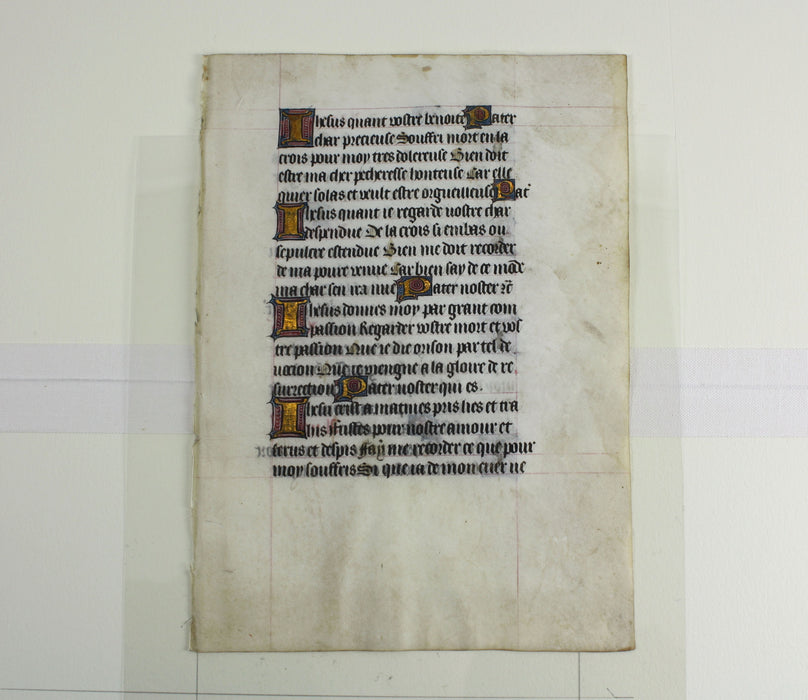 Ihesus quant vostre benoite Pater
char precieuse Souffri mort en la
crois pour moy tres dolereuse Bien doit
estre ma cher pecheresse honteuse Car elle
quier solas et veult estre orgueilleuse Pat
Ihesus quant ie regarde vostre char
despendue De la crois si embas ou
sepulcre estendue Bien me doit recorder
de ma poure venue Car bien say de ce mōde
ma char sen ira nue Pater noster
Ihesus donnes moy par grant com
passion Regarder vostre mort et vos
tre passion Que ie die orison par tel de
uocion Que ie viengne a la gloire de re
surrection Pater noster qui es.
Ihesu crist a matines pris lies et tra
his fustes pour nostre amour et
ferus et despis Fay me recorder ce que pour
moy souffris Si que ia de mon cuer ne